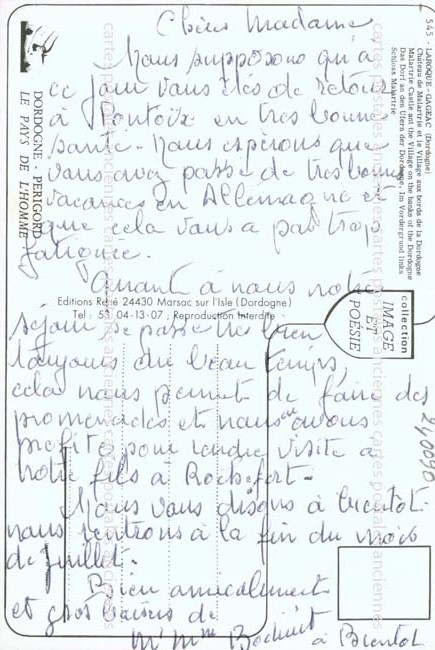 Chère Madame
Nous supposons qu'à
ce jour vous êtes de retour
à Pontoix en très bonne
santé. Nous espérons que
vous avez passé de très bonnes
vacances en Allemagne et
que cela vous a pas trop
fatiguée.
Quant à nous notre
séjour se passe très bien
toujours du beau temps,
cela nous permet de faire des
promenades et nous en avons
profité pour rendre visite à
notre fils à Rochefort.
Nous vous disons à bientôt
nous rentrons à la fin du mois
de juillet.
Bien amicalement
et gros baisers de
Mr Mme
à Bientôt
545 - LAROQUE - GAGEAC (Dordogne)
- Château de Malartrie et le Village aux bords de la Dordogne
Malartrie Castle ant the Village on the banks of the Dordogne
Das Dorf an den Ufern der Dordogne. Im Vordergrund links
Schloss Malartrie
DORDOGNE - PERIGORD
LE PAYS DE L'HOMME
Editions René 24430 Marsac sur l'Isle (Dordogne)
Tel : 53 04-13-07 : Reproduction Interdite
collection
IMAGE
ET
POÉSIE
240090
cartes postales anciennes